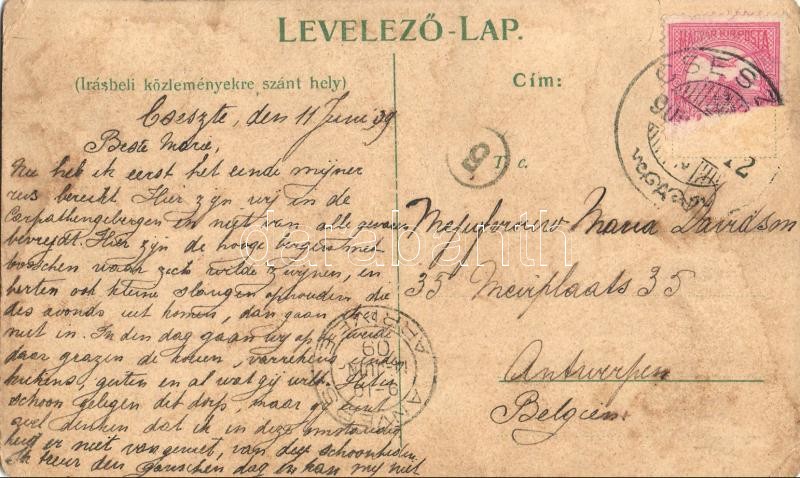 LEVELEZŐ-LAP.
(Irásbeli közleményekre szánt hely)
Cím:
MAGYAR KIR. POSTA
Cseszte, den 11 Juni 09
Beste Marie,
Nu heb ik eerst het einde mijner
reis bereikt. Hier zyn wij in de
Carpathengebergen en niet van alle gevaren
bevrijdt. Hier zijn de hooge bergen met
bosschen waar zich wilde zwijnen, en
herten ook kleine slangen ophouden die
des avonds uit komen, dan gaan
niet in. In den dag gaan wij op de weide
daar grazen de koeien, varrekens,
kiekens, geiten en al wat gij wilt. Het is
schoon gelegen dit dorp, maar gij kunt
wel denken dat ik in deze omstandig
heid er niet van geniet, van deze schoonheden.
Ik treur den ganschen dag en kan mij niet
T. c.
Mejufvrouw Maria Davidson
35 Meirplaats 35
Antwerpen
Belgien.
CSESZ
ANVERS
ARRIVEE
9-10
14 JUIN
09
19
darabanth